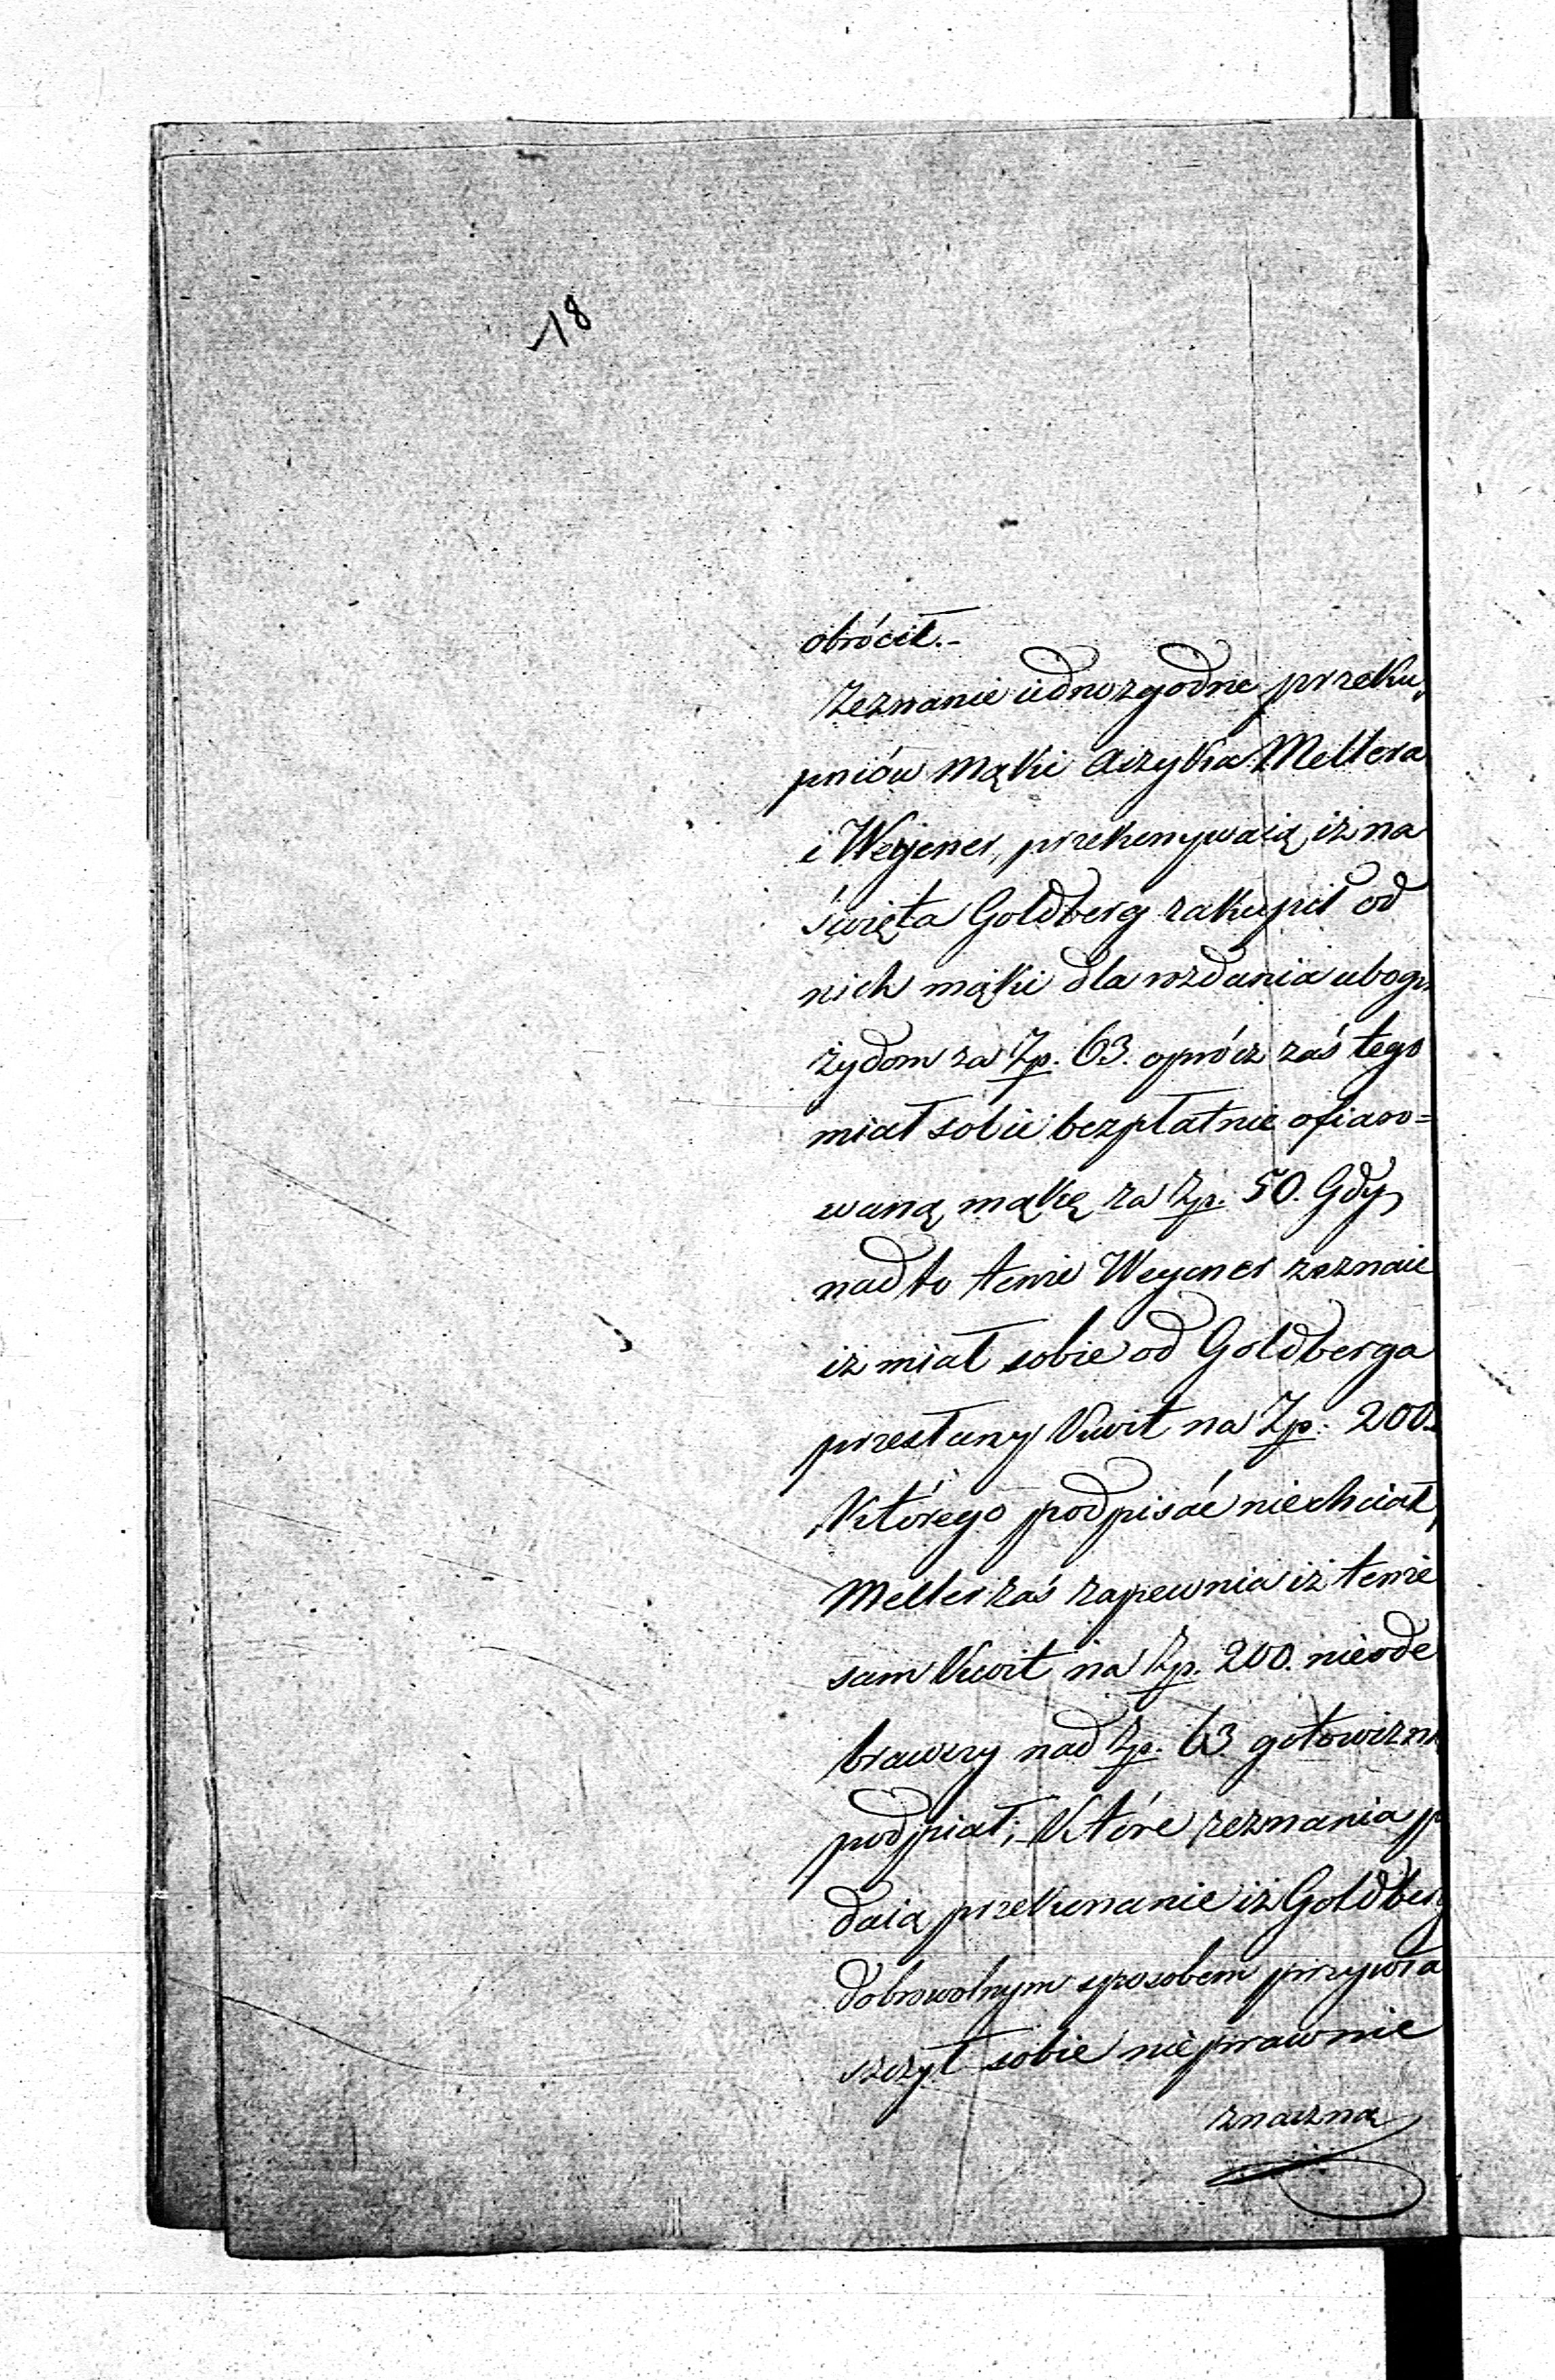 18
obrócił.-
Zeznanie iednozgodne przeku„
pniów mąki Aizyka Mellera
i Weyener, przekonywaią, iż na
święta Goldberg zakupił od
nich mąki dla rozdania ubogi
żydom za Zp. 63. oprócz zaś tego
miał sobie bezpłatnie ofiaro=
waną mąkę za Zp. 50. Gdy
nadto tenże Weyener zeznaie
iż miał sobie od Goldberga
przesłany Kwit na Zp. 200.
Którego podpisać niechciał,
Meller zaś zapewnia iż tenże
sam Kwit na Zp. 200. nieode
brawszy nad Zp. 63. gotowizn
podpisał; Które zeznania p
daią przekonanie iż Goldberg
dobrowolnym sposobem przywła
szczył sobie nieprawnie
znaczną